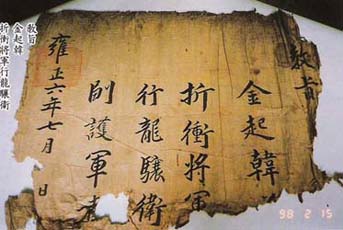 敎旨
金起韓
折衝將軍
行龍驤衛
副護軍者
雍正六年七月 日
敎旨
金起韓
折衝將軍行龍驤衛
98 2 15